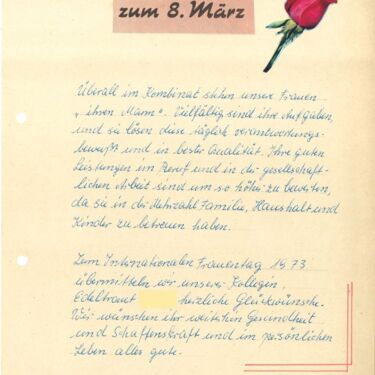 zum 8. März
Überall im Kombinat stehen unsere Frauen
"ihren Mann". Vielfältig sind ihre Aufgaben,
und sie lösen diese täglich verantwortungs-
bewußt und in bester Qualität. Ihre guten
Leistungen im Beruf und in der gesellschaft-
lichen Arbeit sind um so höher zu bewerten,
da sie in der Mehrzahl Familie, Haushalt und
Kinder zu betreuen haben.
Zum Internationalen Frauentag 1973
übermitteln wir unserer Kollegin,
Edeltraut herzliche Glückwünsche.
Wir wünschen ihr weiterhin Gesundheit
und Schaffenskraft und im persönlichen
Leben alles gute.